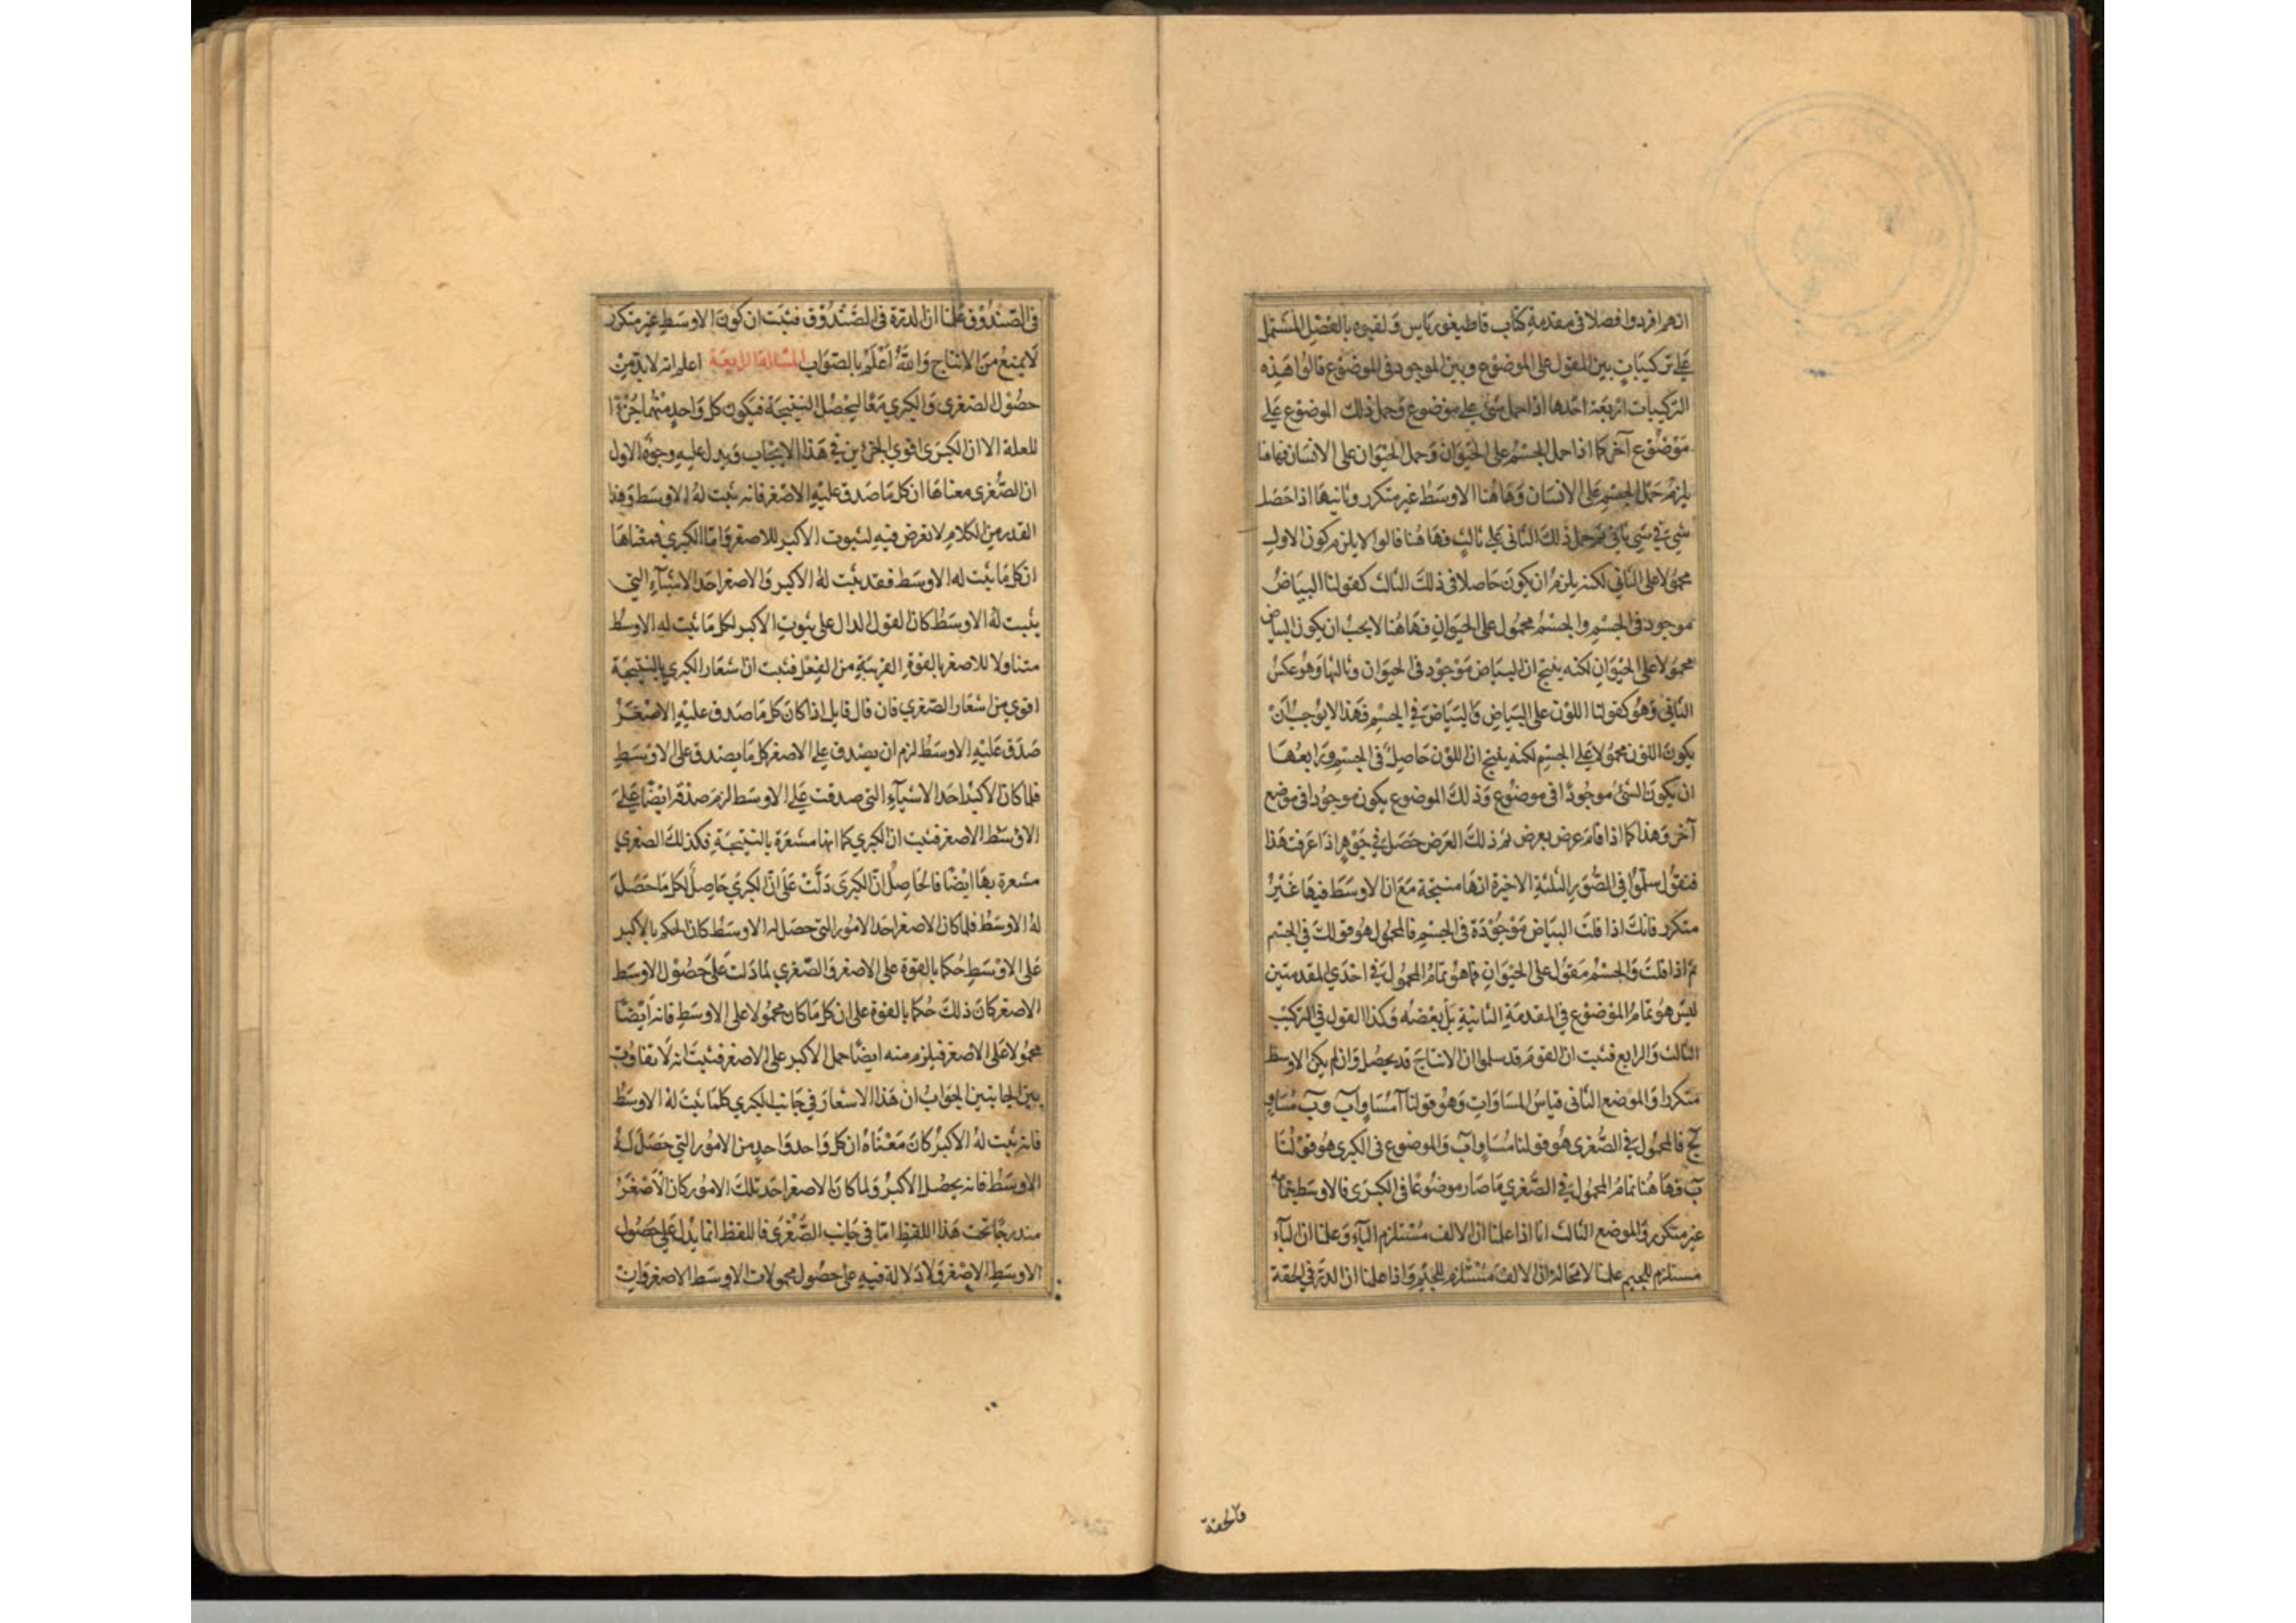 انهم افردوا فصلا فى مقدمة كتاب قاطيغورياس وَلقبوه بالفصْلِ المشتمل
عَلى تركيباتٍ بين المقول على الموضوع وبين الموجود فى الموضوع قالوا هَذِه
التركيبات اربعَة احَدها اذا حمل شئ على موضوع وَحمل ذلك الموضوع عَلى
مَوْضُوع آخر كما اذا حمل الجسْمُ على الحَيَوان وَحمل الحيَوان على الانسَان فهاهنا
يلزمُ حَمْل الجسْمِ عَلى الانسَان وَهَاهُنا الاوسَطُ غير متكرر وثانيهَا اذا حَصَل
شئ فى شئ ثانٍ ثم حمل ذلكَ الثانى عَلى ثالثٍ فهَاهُنا قالوا لا يلزم كون الاول
محمُولا على الثانى لكنه يلزمُ ان يكونَ حَاصلا فى ذلكَ الثالث كقولنا البيَاضُ
موجود فى الجسْمِ والجسْمُ محمُول على الحيَوانِ فهَاهُنا لا يجبُ ان يكون البياض
محمُولا على الحيَوانِ لكنه ينتج ان البيَاض مَوْجوْد فى الحيَوان وثالثها وَهُو عكسُ
الثانى وَهُو كقولنا اللوْن على البيَاضِ وَالبيَاض فى الجسْمِ فهَذا لا يوْجبُ انْ
يكونَ اللوْن محمُولا عَلى الجسْمِ لكنه ينتج ان اللوْن حَاصِل فى الجسْمِ وَرَابعُهَا
ان يكونَ الشئ موجُودًا فى موضُوع وَذلكَ الموضوع يكون موجُودا فى موضع
آخر وَهذا كما اذا قامَ عرض بعرض ثم ذلكَ العَرَض حَصَل فى جَوْهرٍ اذا عَرفت هَذا
فنقول سلّموا فى الصُّوَرِ الثلثة الاخيرَة انهَا منتجة مَعَ ان الاوسَط فيهَا غَيْرُ
متكرر فانكَ اذا قلتَ البيَاض مَوْجُوْدَة فى الجسْمِ فالمحمُول هُو قولكَ فى الجسْم
ثمّ اذا قلتَ وَالجسْمُ مَقوُل على الحيَوَانِ فما هُو تمامُ المحمُول فى احْدَي المقدمتين
ليسَ هُو تمامُ الموْضُوْع فى المقدمَةِ الثانيةِ بَلْ بَعْضُه وَكذا القول فى التركيْب
الثالث وَالرابع فثبت ان القومَ قد سلموا ان الانتاجَ قد يحصُل وَان لم يكن الاوسط
متكررا وَالموضع الثانى قياسُ المسَاوَاتِ وَهُو قولنا آ مُسَاوٍ لب وب مُسَاوٍ
لج فالمحمُول فى الصُّغرى هُو قولنا مُسَاوٍ لب وَالموضوع فى الكبرى هُو قوْلُنا
بَ فهَاهُنا تمامُ المحمُول فى الصُّغري مَا صَار موضُوعًا فى الكبرَى فالاوسَط بتمامه
غير متكرر وَالموضع الثالث انا اذا علمنا ان الالف مُسْتلزم للباء وَعلمنا ان الباء
مستلزم للجيم علمنا لا محَالة ان الالفَ مُسْتلزم للجيْمِ وَاذا علمنا ان الدرّة فى الحقة
فالحقة
فى الصّنْدُوْق عَلمنَا ان الدرّة فى الصّنْدُوْق فثبَت ان كونَ الاوسَطِ غير متكرر
لا يمنعُ منَ الانتاج وَاللهُ أعْلمُ بالصّوَاب المسْألة الرابعَة اعلم انه لا بدّ مِنْ
حصُوْل الصّغرى وَالكبري مَعًا ليَحْصُل النتيجَة فيكُون كل وَاحدٍ منهُما جُزْءًا
للعلة الا ان الكبرَى اقوي الجزئين فى هَذا الايجَاب وَيدل عليهِ وجوْهٌ الاول
ان الصُّغرى معناهَا ان كل مَا صَدق عليْهِ الاصْغر فانه يثبت لهُ الاوسَط وَهذا
القدر من الكلامِ لا تعرض فيهِ لثبوت الاكبر للاصغر وَامّا الكبري فمعْناهَا
ان كل مَا يثبت له الاوسَط فقد يثبت لهُ الاكبر وَالاصغر احَد الاشيآءِ التى
يثبت لهُ الاوسَطُ كان القول الدال على ثبُوتِ الاكبر لكل مَا يثبت لهِ الاوسَط
متناولا للاصغر بالقوَة القريبَةِ من الفِعْل فثبت ان اشعَار الكبري بالنتيْجَة
اقوي من اشعَار الصّغري فان قال قايل اذا كانَ كل مَا صَدق عليْهِ الاصْغَرُ
صَدَق عَليْهِ الاوسَطُ لزم ان يصْدق على الاصغر كل مَا يصدق على الاوْسَطِ
فلما كان الاكبرُ احَد الاشيآءِ التى صدقت عَلى الاوسَط لزمَ صدْقه ايْضًا عَلى
الاوْسَط الاصغر فثبت ان الكبري كما انها مشعَرَة بالنتيْجَةِ فكذلكَ الصغرى
مشعرة بهَا ايْضًا فالحَاصِلُ انّ الكبرى دَلَّتْ عَلى انّ الكبريَ حَاصِلٌ لكل مَا حَصَلَ
لهُ الاوسَطُ فلما كان الاصغر احَد الامُور التى حصَل له الاوسَطُ كان الحكم بالاكبر
عَلى الاوْسَطِ حُكما بالقوَة على الاصغر وَالصّغري لمّا دَلت عَلى حصُوْل الاوسَط
الاصغر كانَ ذلكَ حُكما بالقوَة على ان كل مَا كان محمُولا على الاوسَطِ فانه أيْضًا
محمُولا عَلى الاصغر فيلزم منه ايضًا حمل الاكبر على الاصغر فثبتَ انه لا تفاوُت
بين الجانبَين الجَوَابُ ان هَذا الاشعَارَ فى جَانب الكبري كلما يثبَت لهُ الاوسَطُ
فانه يثبت لهُ الاكبرُ كانَ مَعْنَاهُ ان كل وَاحد وَاحدٍ من الامُور التى حَصَلَ لهُ
الاوسَطُ فانه يحصُل الاكبرُ وَلما كانَ الاصغر احَد تلكَ الامور كان الاصْغَرُ
مندرجًا تحت هَذا اللفظِ امّا فى جَانب الصُّغْرَى فاللفظ انما يدل عَلى حُصُول
الاوسَطِ الاصْغر وَلا دَلالة فيهِ على حصُول محمولات الاوسَط الاصغر وَان